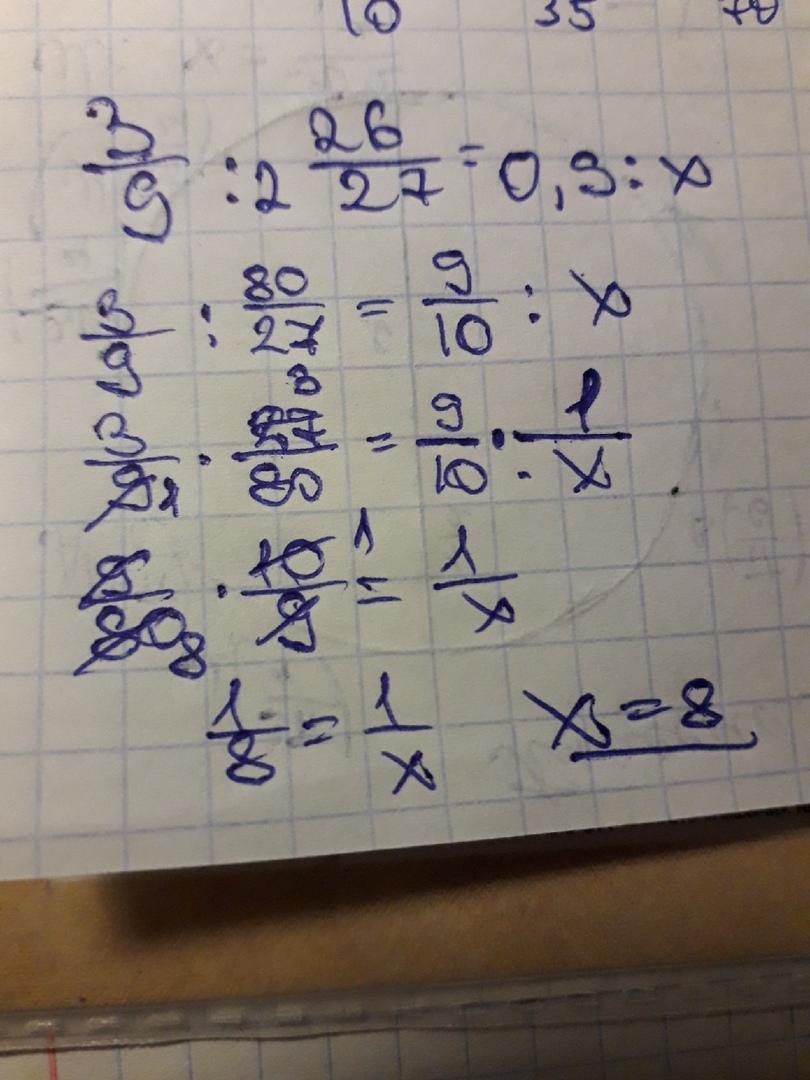 10 35 70
3/9 : 2 26/27 = 0,9 : x
3/9 : 80/27 = 9/10 : x
3/9 1 · 27/80 3 = 9/10 : 1/x
9/80 8 · 10/9 1 = 1/x
1/8 = 1/x x = 8